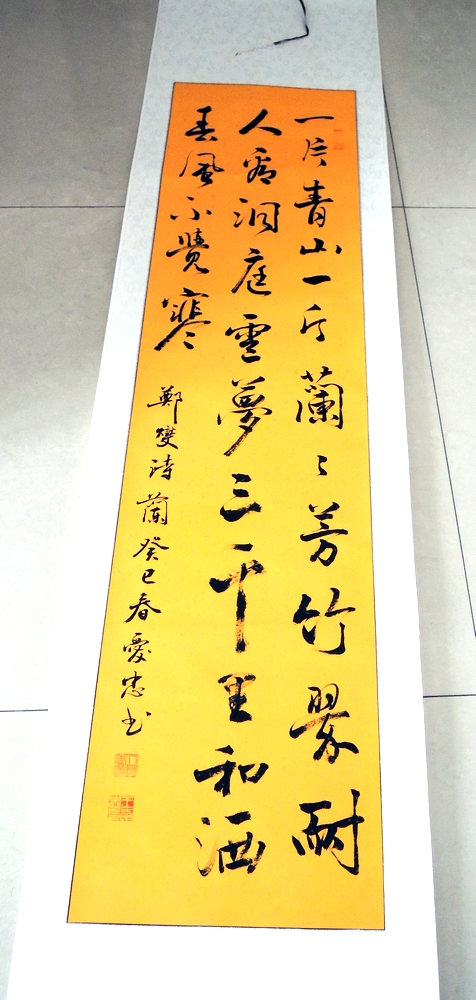 一片青山一片蘭〻芳竹翠耐
人看洞庭雲夢三千里和滿
春風不覺寒
鄭燮詩蘭癸巳春愛忠书